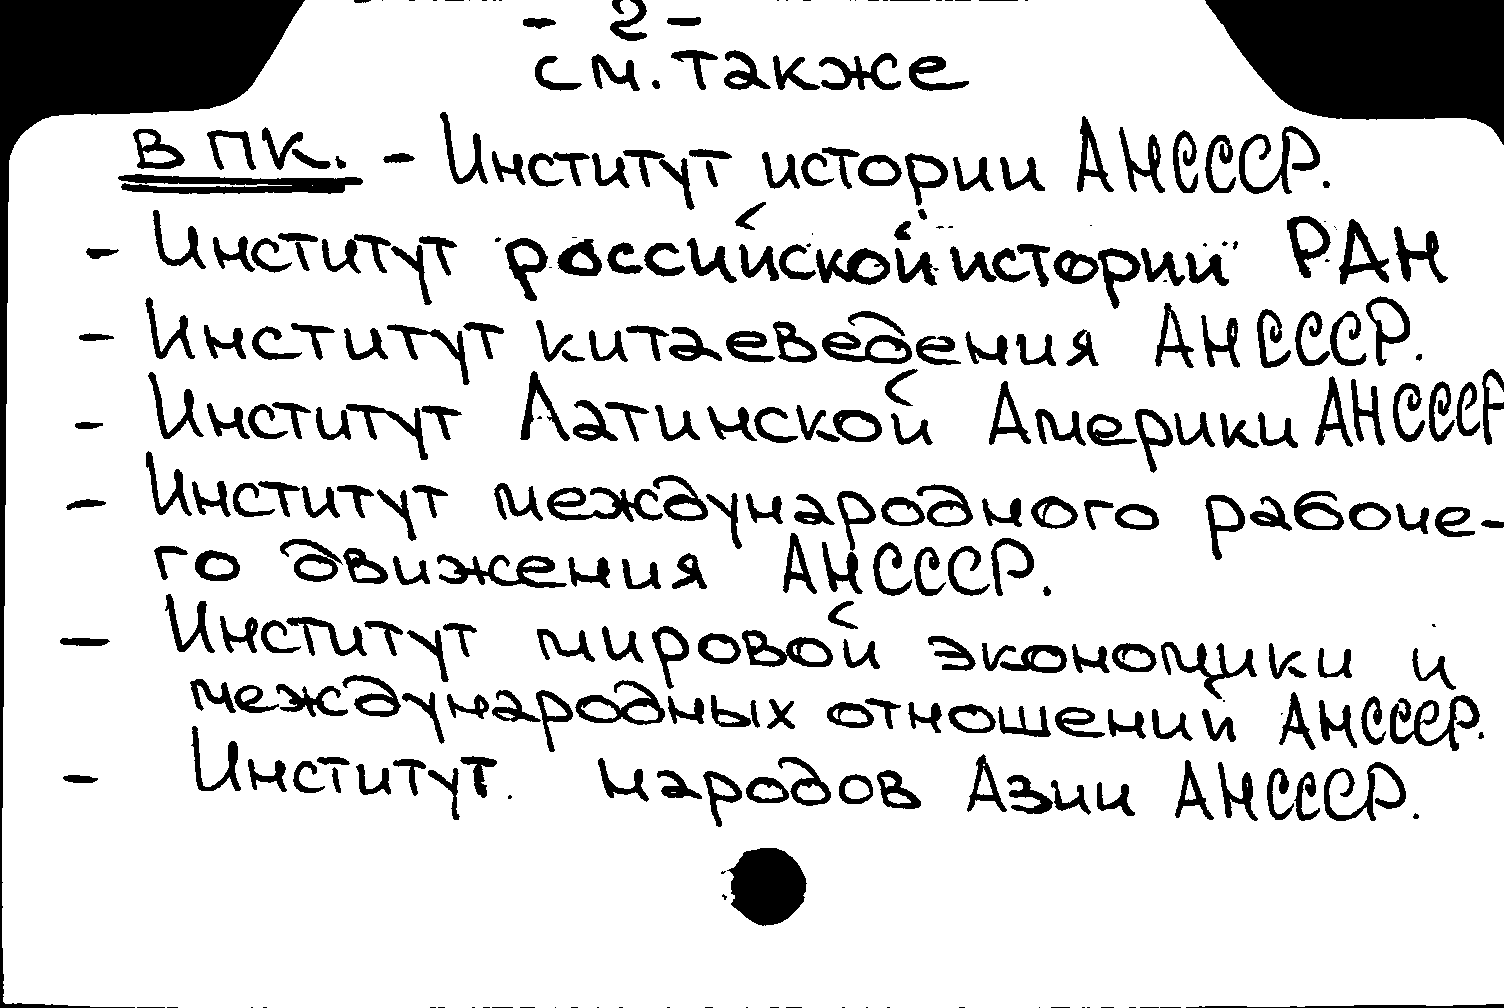 - 2 -
см. также
В ПК. - Институт истории АН СССР.
- Институт российской истории РАН
- Институт китаеведения АН СССР.
- Институт Латинской Америки АН СССР
- Институт международного рабоче-
го движения АН СССР.
- Институт мировой экономики и
международных отношений АН СССР.
- Институт народов Азии АН СССР.